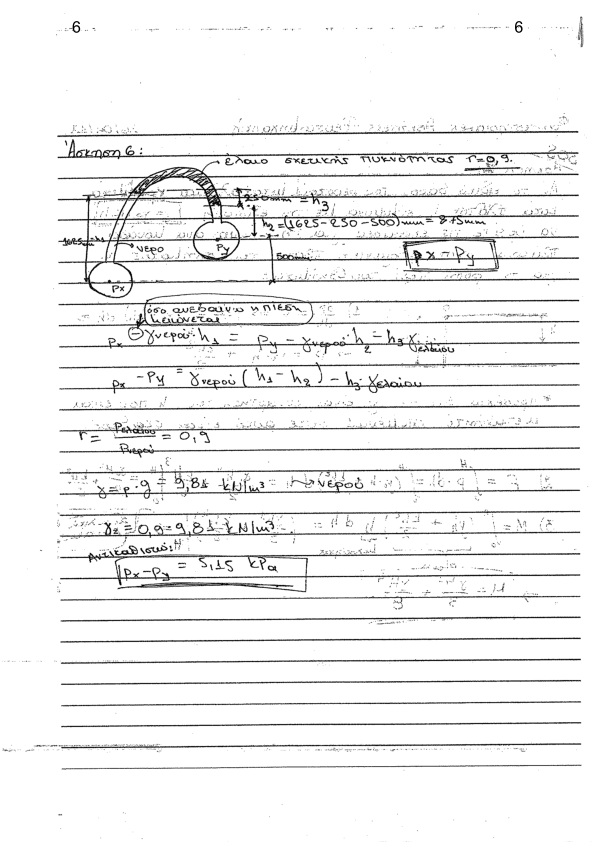 6 6
Άσκηση 6:
έλαιο σχετικής πυκνότητας r=0,9.
250mm = h3
h2=(1625-250-500)mm = 875mm
1625mm=h1
νερό
Py
500mm
Px - Py
Px
όσο ανεβαίνω η πίεση
μειώνεται
Px - γνερού·h1 = Py - γνερού·h2 - h3 γελαίου
Px - Py = γνερού (h1 - h2) - h3·γελαίου
r = ρελαίου/ρνερού = 0,9
γ=ρ·g = 9,81 kN/m³ → νερού
γ2=0,9=9,81 kN/m³
Αντικαθιστώ:
Px-Py = 5,15 kPa